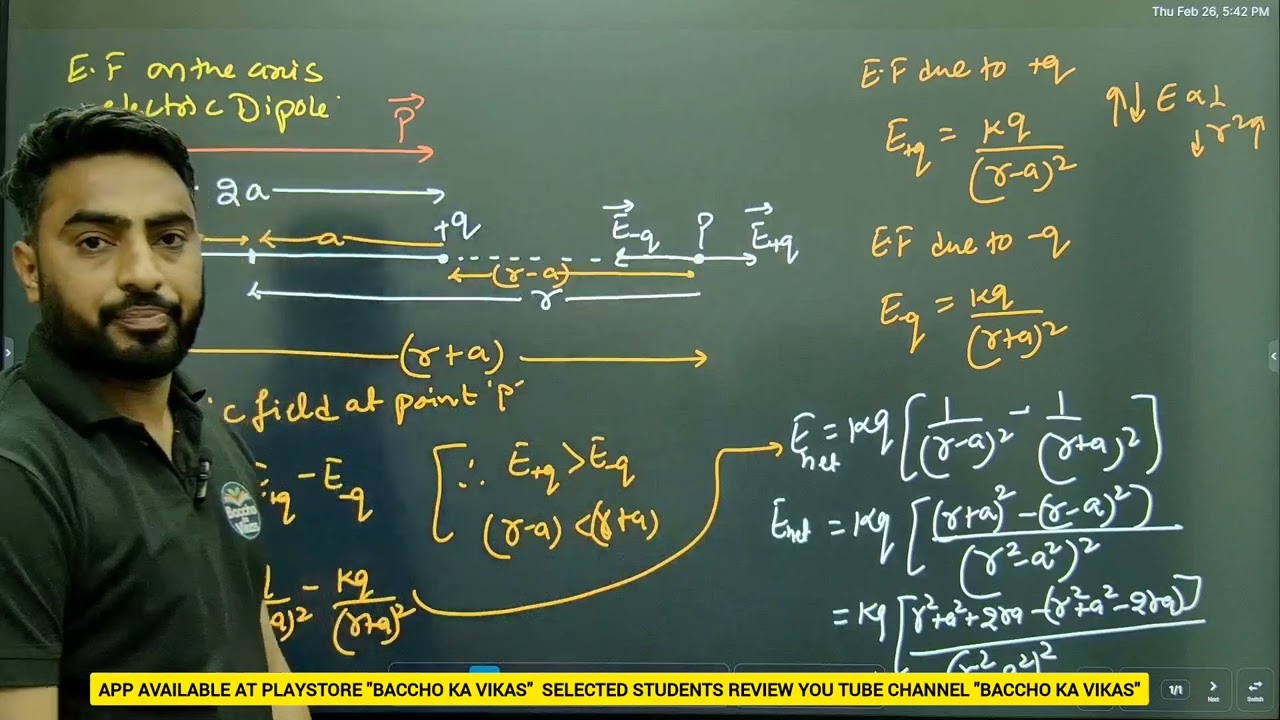 Thu Feb 26, 5:42 PM
E.F on the axis
electric Dipole
P
2a
a
+q
E-q
P
E+q
(r-a)
r
(r+a)
c field at point 'P'
- E-q
∴ E+q > E-q
(r-a) < (r+a)
- Kq/(r+a)²
E.F due to +q
E+q = Kq/(r-a)²
↑↓ E α 1/r²↑
E.F due to -q
E-q = Kq/(r+a)²
Enet = Kq [1/(r-a)² - 1/(r+a)²]
Enet = Kq [(r+a)² - (r-a)²)/(r²-a²)²
= Kq [r²+a²+2ra - (r²+a²-2ra)]
Baccho
Vikas
APP AVAILABLE AT PLAYSTORE "BACCHO KA VIKAS" SELECTED STUDENTS REVIEW YOU TUBE CHANNEL "BACCHO KA VIKAS"
1/1
Next
Switch